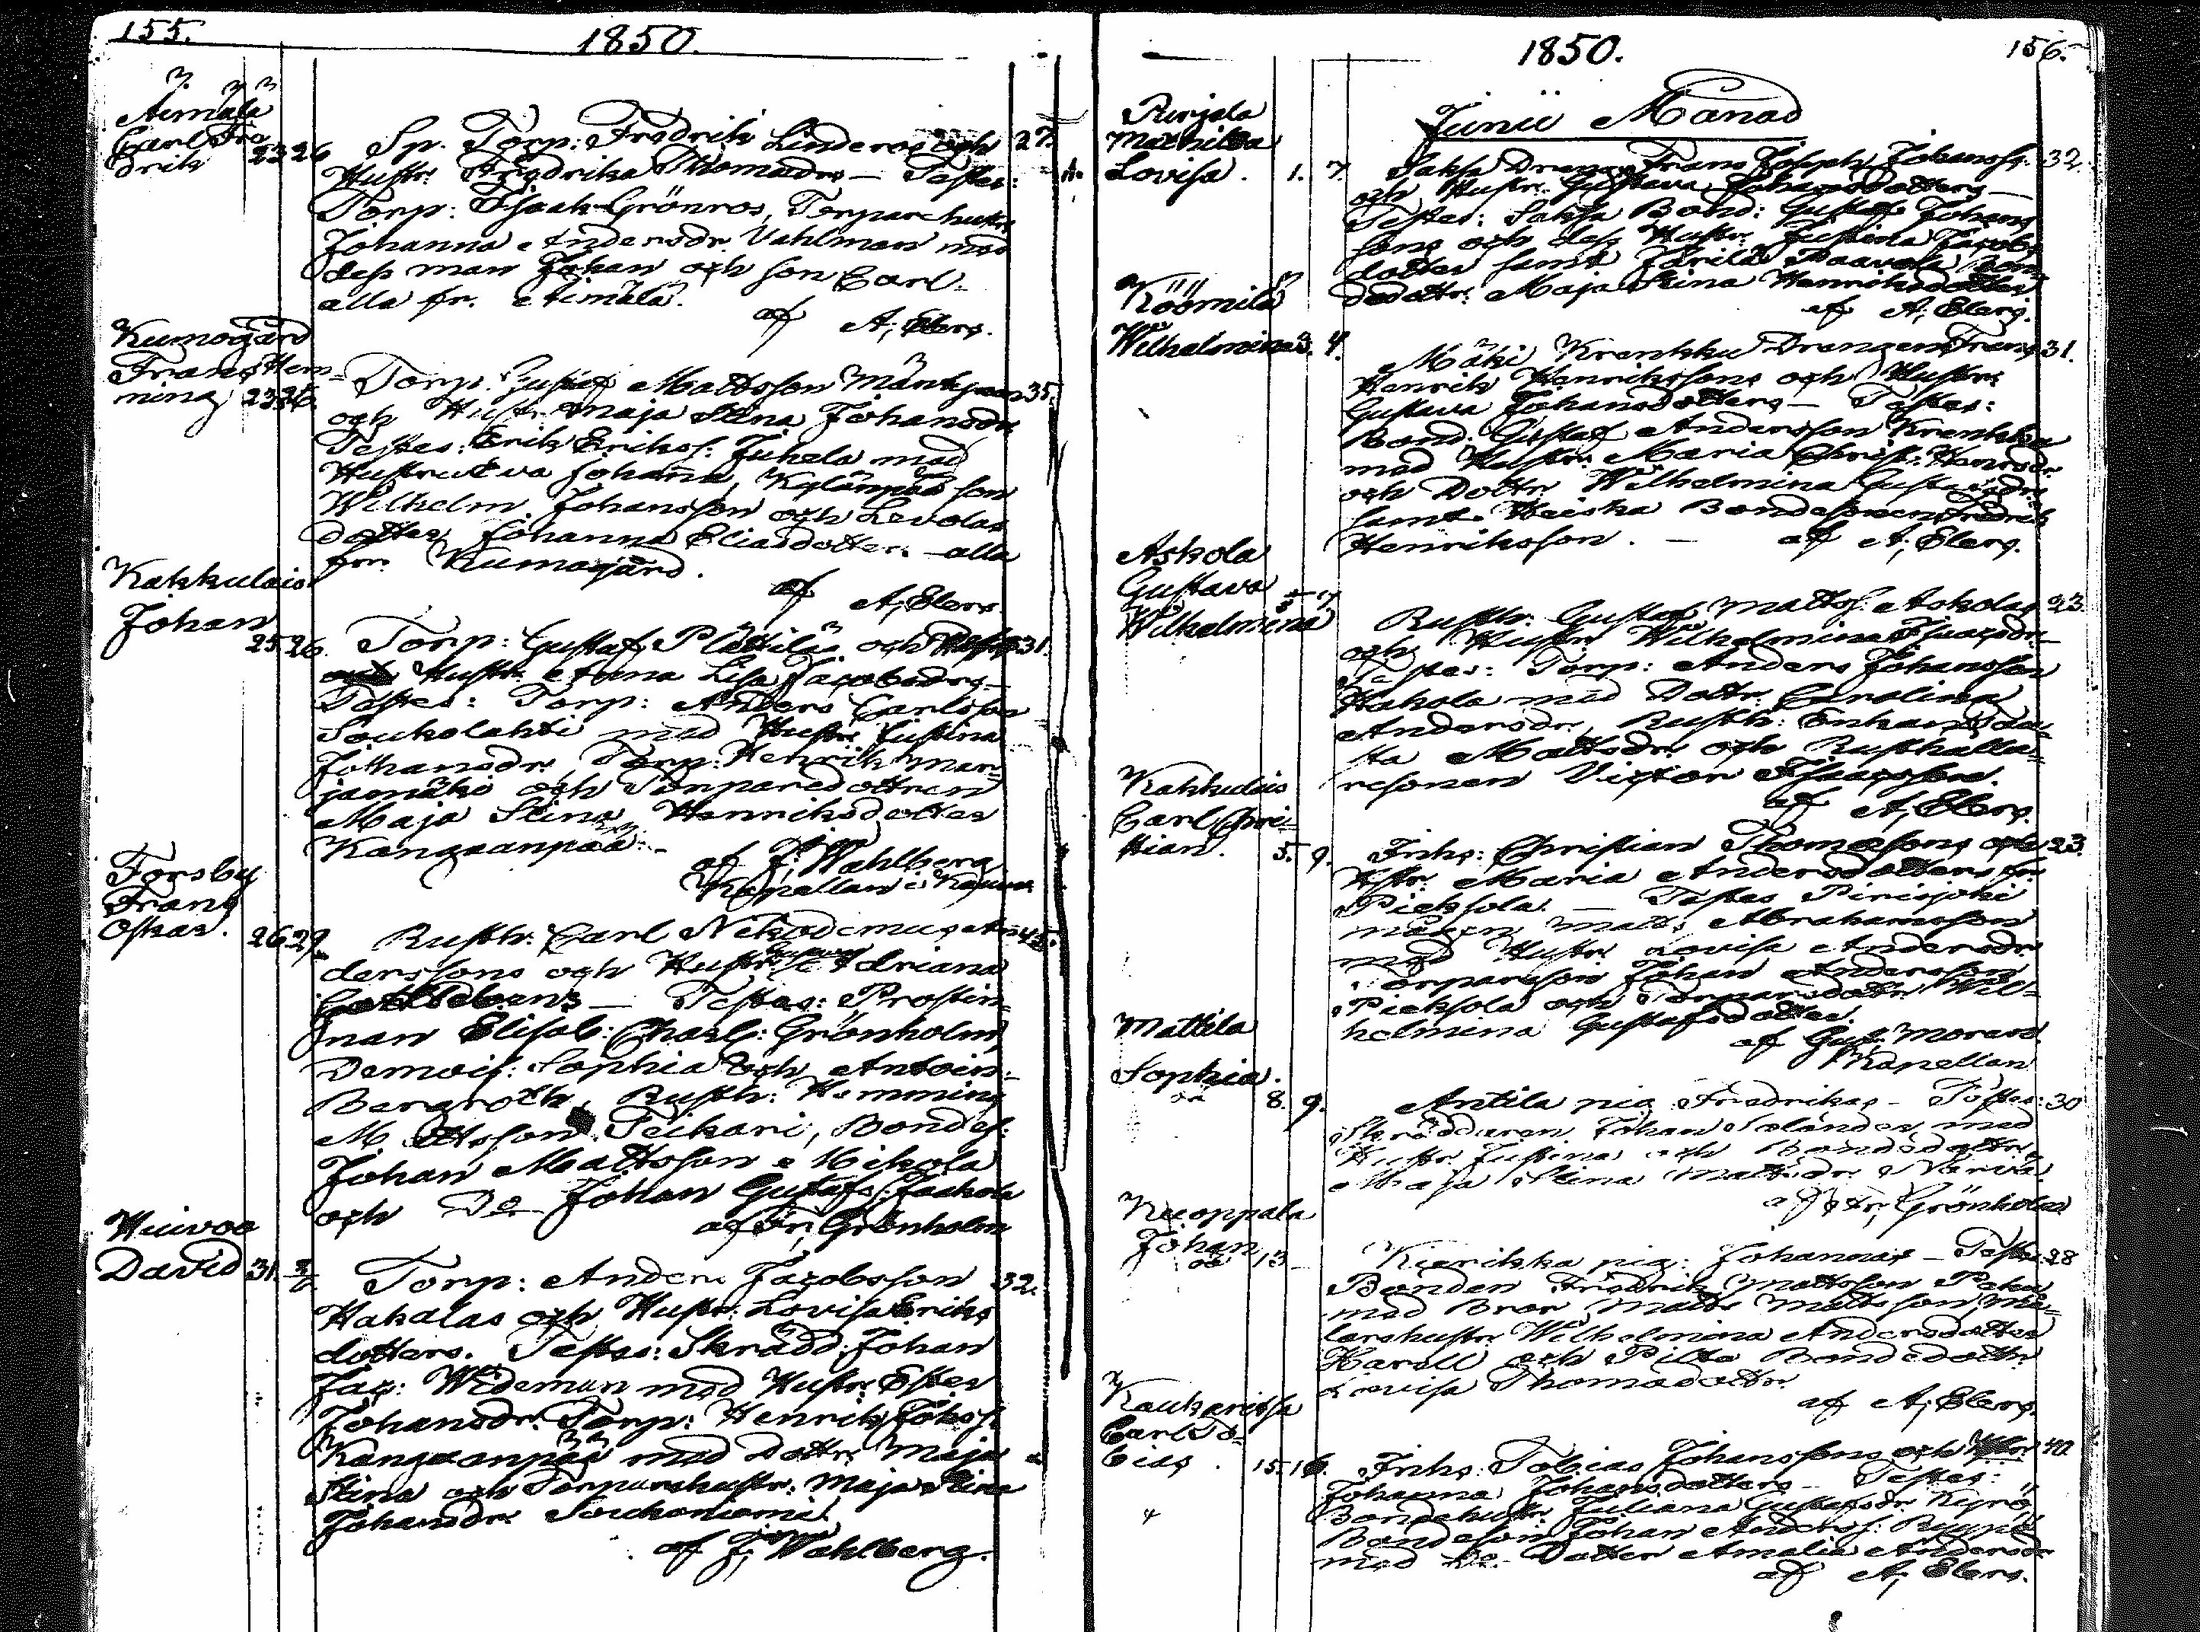 155.
1850.
Aimälä
Carl Fre
drik 23 26
Sp. Torp: Fredrik Linderos och 27.
Hustr: Fredrika Thomasdrs — Testes:
Torp: Isaak Grönros, Torpare hustr
Johanna Andersdr Vahlman med
dess man Johan och son Carl
alla fr. Aimälä.
af A, Elers.
Kumogård
Frans Hem-
ning 23 26.
Torp. Gustaf Mattsson 35.
och Hustr. Maja Stina Johansdrs
Testes: Erik Eriks. Juhela med
Hustru Eva Johanna, son
Wilhelm Johansson och Levolas
dotter Johanna Eliasdotter. alla
frn Kumogård.
af A, Elers.
Kakkulais
Johan
25 26. Torp: Gustaf Plättiläs och 31.
Hustr: Anna Lisa Jacobsdrs.—
Testes: Torp: Anders Carlsson
Soukolahti med Hustr Justina
Johansdr. Torp: Henrik Mar-
jamäki och Torparedottren
Maja Stina Henriksdotter
Kangaanpää.
af J, Wahlberg
Kapellan i
Forsby
Frans
Oskar. 26 29.
Rusth: Carl Nikodemus An-
derssons och Hustr. Adriana
— Testes: Prostin-
nan Elisab: Charl: Grönholm,
Demois: Sophia och Antoin:
Bergroth, Rusth: Hemming
Mattsson Teikari, Bondes:
Johan Mattsson Mikola
och Do Johan Gustafs: Jaakola
af Fr, Grönholm
Wuivoo
David 31.
Torp: Anders Jacobsson 32.
Hakalas och Hustr: Lovisa Eriks
dotters. Testes: Skrädd: Johan
Jac: Wideman med Hustr Ester
Johansdr. Torp: Henrik Johss:
Kangaanpää med Dottr Maja
Stina och Torparehustr: Maja Stina
Johansdr Soukoniemi.
af J, Wahlberg.
1850.
156.
Junii Månad
Purjala
Mathilda
Lovisa. 1. 7.
Saksa Drengen Frans Joseph Johanss: 32.
och Hustr. Gustava Johansdotters —
Testes: Saksa Bond: Gustaf Johans
sons och dess Hustr. Justina Jacobs
dotter samt Järilä Paavola Bon-
dedottr: Maja Stina Henriksdotter
af A, Elers.
Köömilä
Wilhelmina 3. 4.
Mäki Krenkku Drengen Frans 31.
Henrik Henrikssons och Hustr
Gustava Johansdotters — Testes:
Bond. Gustaf Andersson Krenkku
med Hustr. Maria Christ: Henrsdr
och Dottr Wilhelmina Gustafsdr
samt Heiska Bondesonen Fredrik
Henriksson. — af A, Elers.
Askola
Gustava
Wilhelmina
Rusth: Gustaf Matts: Askolas 23.
och Hustr Wilhelmina Isaacsdr
Testes: Torp: Anders Johansson
Hakola med Dottr. Carolina
Andersdr, Rusth: Enkan
Mattsdr och Rusthålla-
resonen Victor Isaacsson.
af A, Elers.
Kakkulais
Carl Chris-
tian. 5. 9.
Inhs: Christian Thomassons och 23.
Hstr. Maria Andersdotters fr.
Pieksola. — Testes
Matts Abrahamsson
med Hustr Lovisa Andersdr
Torpareson Johan Andersson
Pieksola och Torparedottr Wil-
helmina Gustafsdotter.
af Gust. Moren
Kapellan
Mattila
Sophia.
oä 8. 9.
Antila pig. Fredrikas — Testes: 30
Skräddaren Johan Selander med
Hustr Justina och Bondedottr
Maja Stina Mattsdr
af Fr, Grönholm
Kuoppala
Johan
oä 13
Kierikka pig: Johannas — Testes: 28
Bonden Fredrik Mattsson
med Bror Matts Mattsson,
larehustr. Wilhelmina Andersdotter
Karell och Pilto Bondedottr
Lovisa Thomasdottr.
af A, Elers.
Kaukarissa
Carl To-
bias. 15. 16.
Inhs: Tobias Johanssons och Hstr 40.
Johanna Johansdotters — Testes:
Bondehustr. Juliana Gustafsdr Kyrö
Bondeson Johan Anders:
med Do Dotter Amalia Andersdr
af A, Elers.